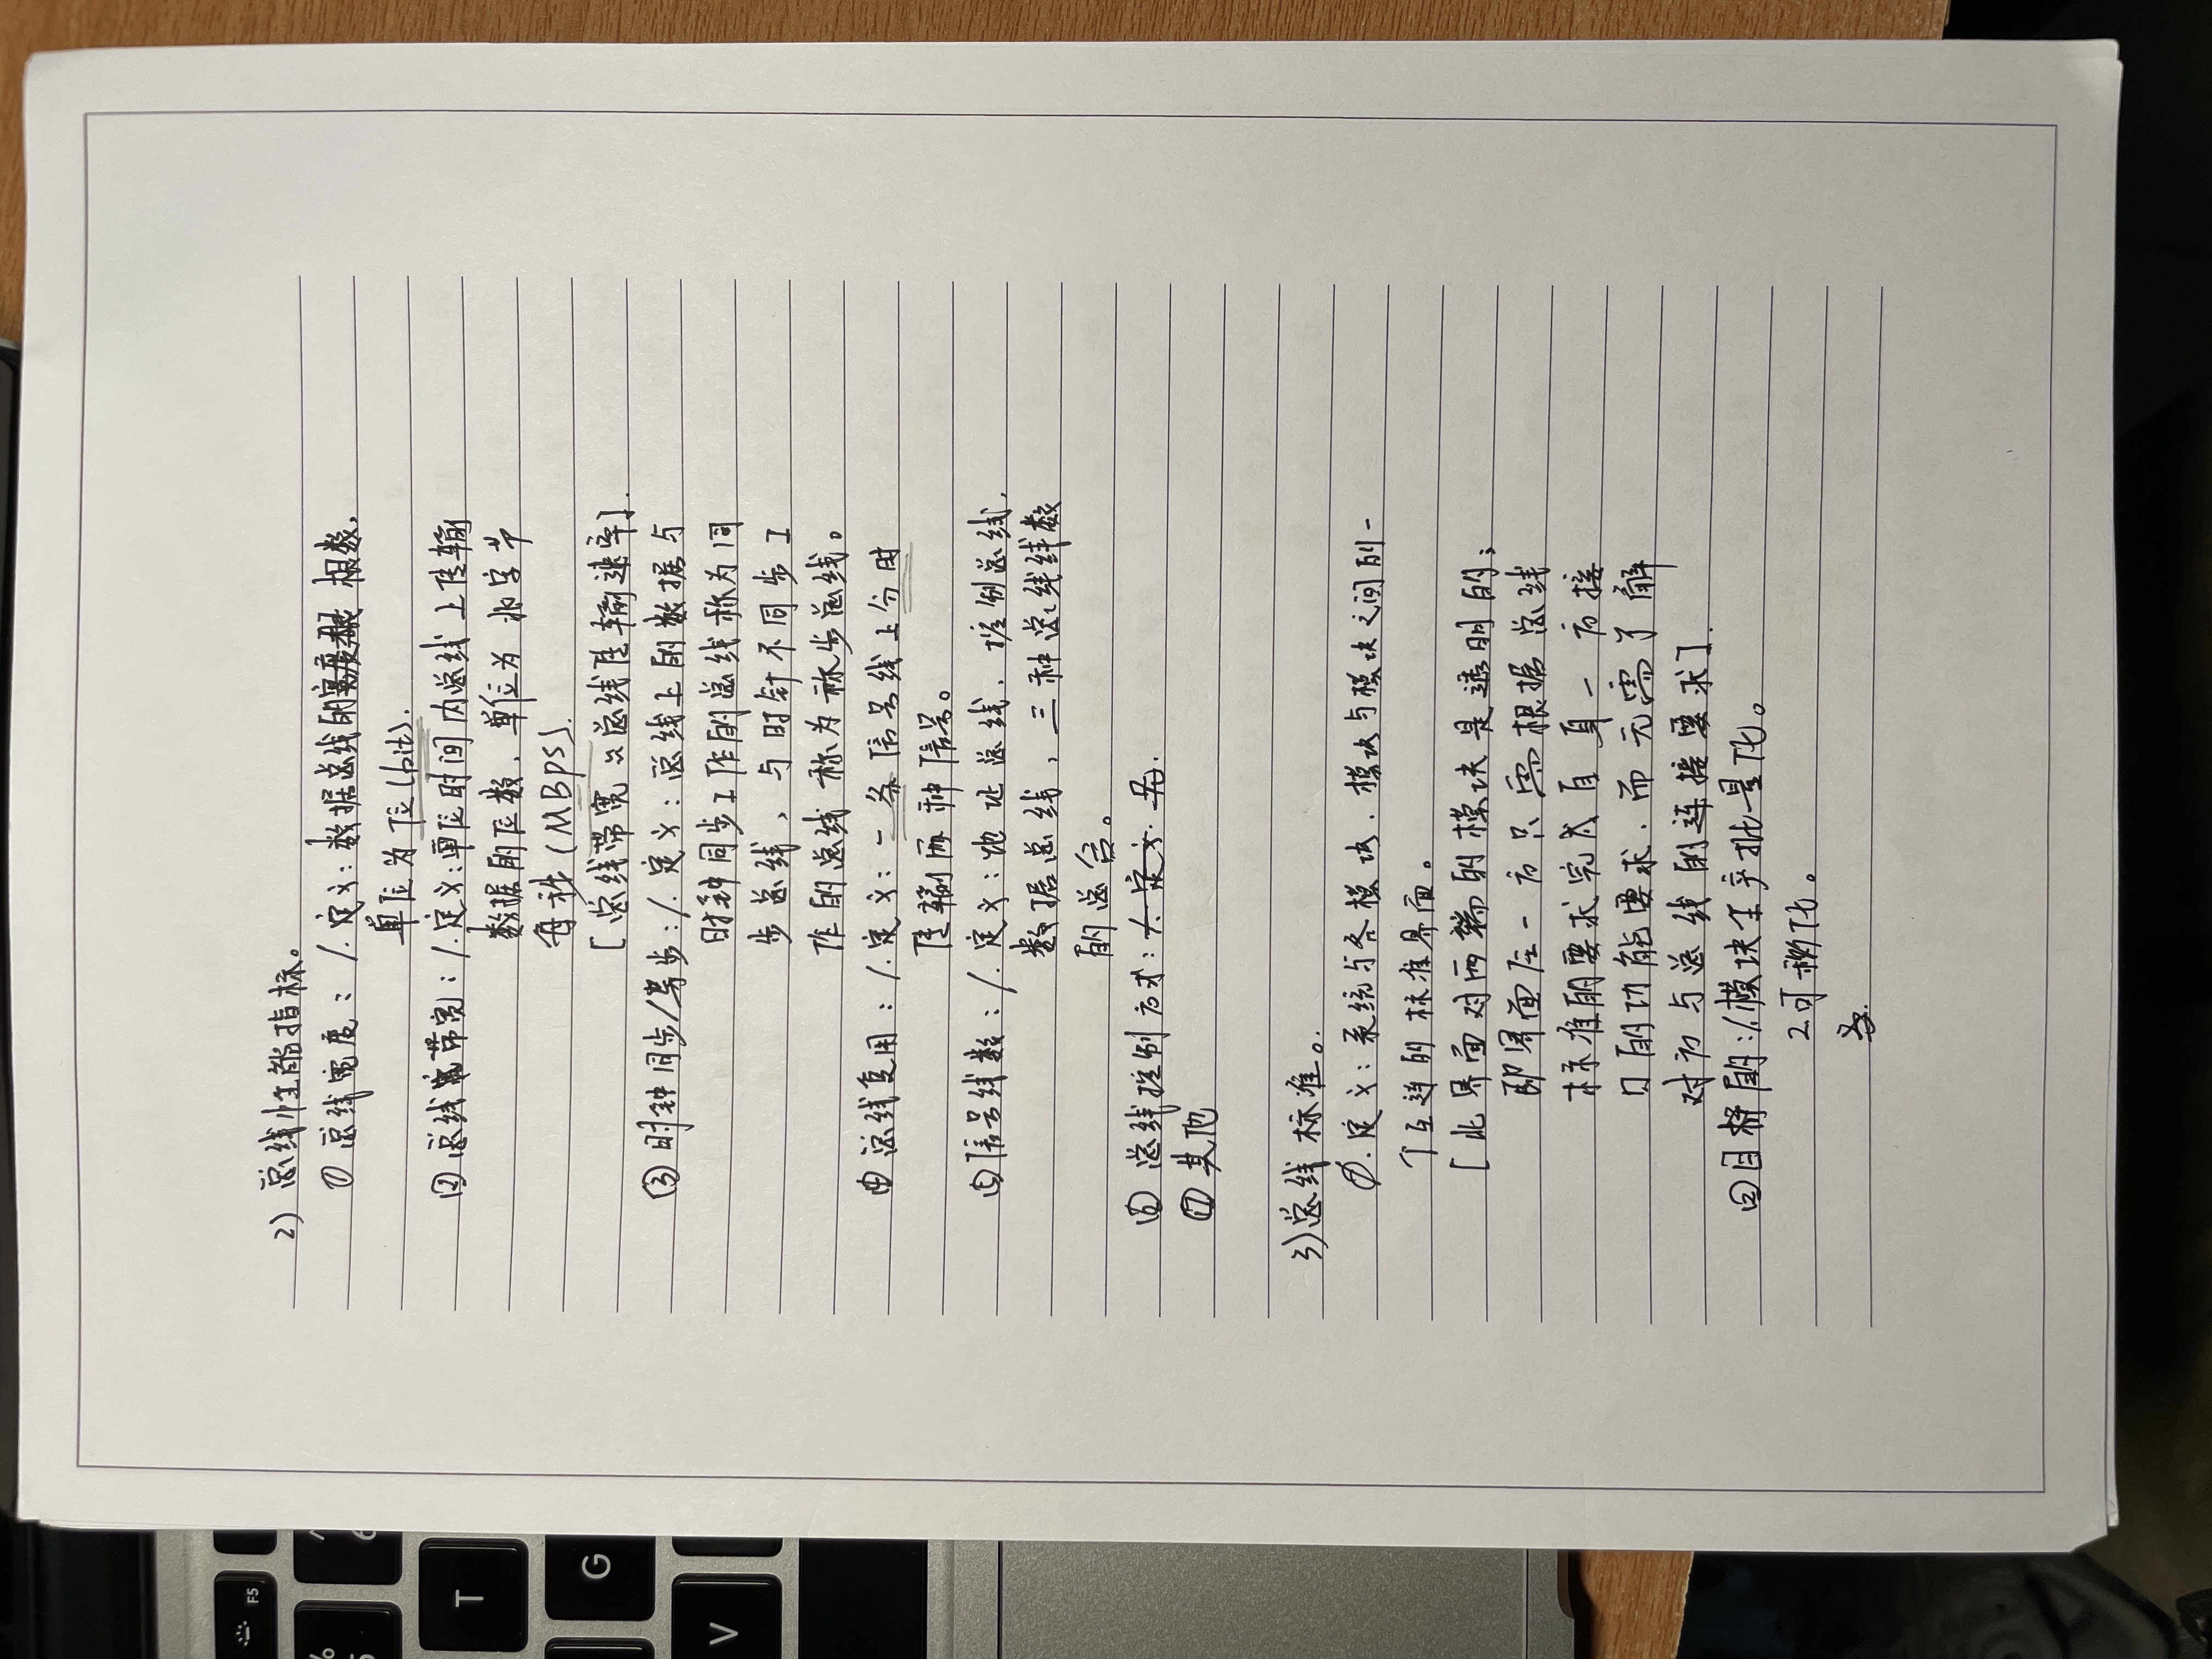 2) 总线性能指标。
① 总线宽度：1. 定义：数据总线的根数，
单位为位(bit).
② 总线带宽：1. 定义：单位时间内总线上传输
数据的位数，单位为兆字节
每秒 (MBps).
[总线带宽 ≈ 总线传输速率].
③ 时钟同步/异步：1. 定义：总线上的数据与
时钟同步工作的总线称为同
步总线，与时针不同步工
作的总线称为称步总线。
④ 总线复用：1. 定义：一条信号线上分时
传输两种信号。
⑤ 信号线数：1. 定义：地址总线、控制总线、
数据总线，三种总线线数
的总合。
⑥ 总线控制方式：
⑦ 其他
3) 总线标准。
①. 定义：系统与各模块、模块与模块之间的一
个互连的标准界面。
[此界面对两端的模块是透明的；
即界面任一方只需根据总线
标准的要求完成自身一方接
口的功能要求，而无需了解
对方与总线的连接要求].
② 目的：1. 模块生产批量化。
2. 可移化。
F5
T
G
V